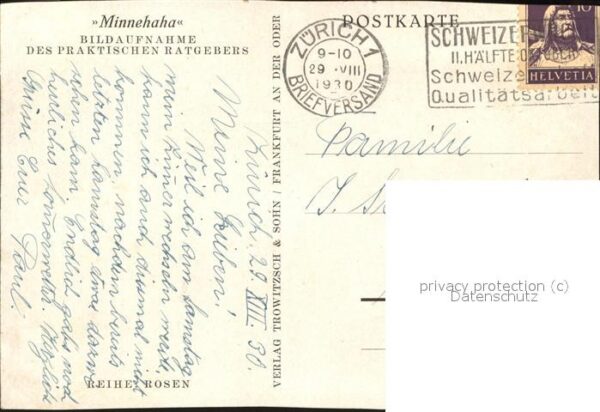 »Minnehaha«
BILDAUFNAHME
DES PRAKTISCHEN RATGEBERS
POSTKARTE
ZÜRICH 1
9-10
29.VIII
1930
BRIEFVERSAND
SCHWEIZER
II.HÄLFTE OKTOBER
Schweizer
Qualitätsarbeit
10
HELVETIA
Zürich, 29. VIII. 30.
Meine Lieben!
Weil ich am Samstag
mein Zimmer wechseln werde,
kann ich auch diesmal nicht
kommen, nachdem bereits
letzten Samstag etwas
kam. Endlich gabs noch
herrliches Sommerwetter. Herzliche
Grüsse Euer Paul.
Familie
J.
VERLAG TROWITZSCH & SOHN / FRANKFURT AN DER ODER
REIHE: ROSEN
privacy protection (c)
Datenschutz